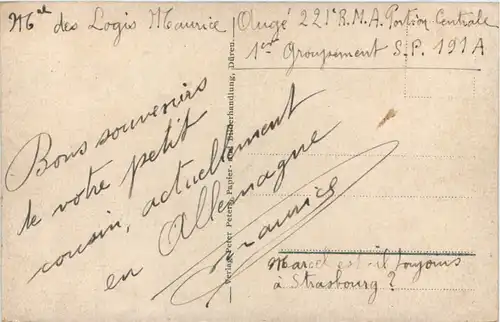 Mal des Logis Maurice Augé 221e R.M.A. Portion Centrale
1er Groupement S.P. 191 A
Bons souvenirs
de votre petit
cousin, actuellement
en Allemagne
Maurice
Marcel est-il toujours
à Strasbourg?
Verlag Peter Peters, Papier- und Bilderhandlung, Düren.